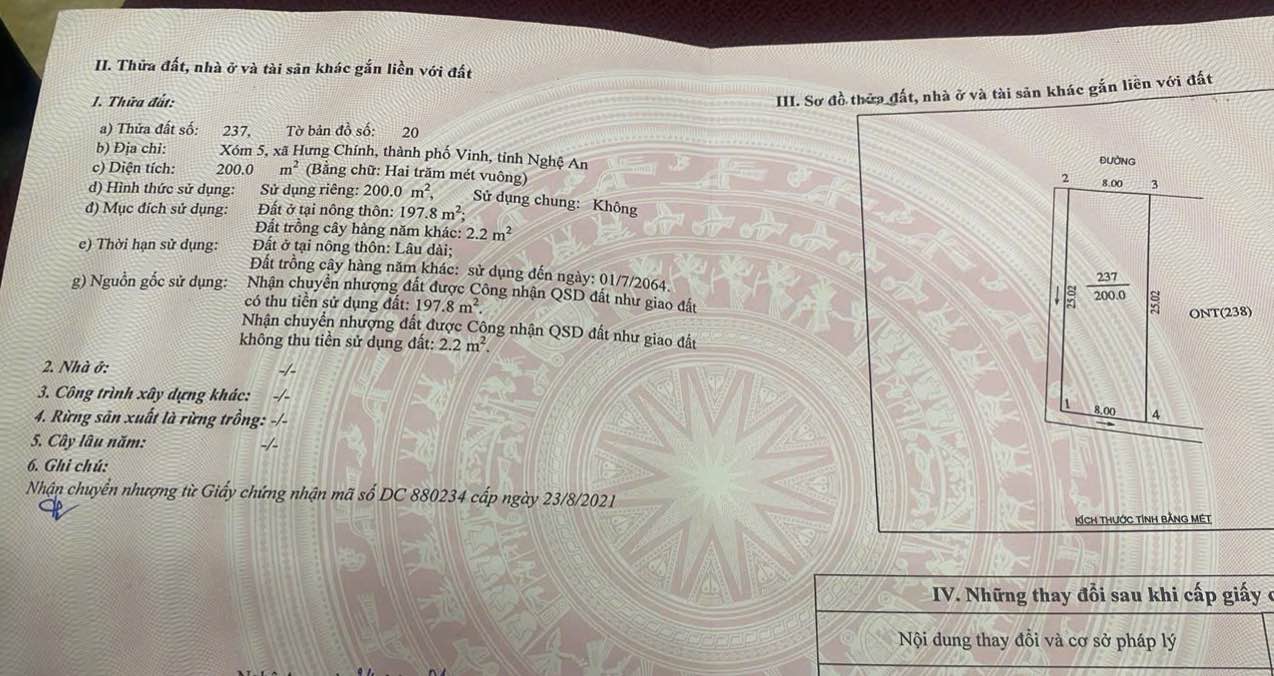 II. Thửa đất, nhà ở và tài sản khác gắn liền với đất
1. Thửa đất:
a) Thửa đất số: 237, Tờ bản đồ số: 20
b) Địa chỉ: Xóm 5, xã Hưng Chính, thành phố Vinh, tỉnh Nghệ An
c) Diện tích: 200.0 m² (Bằng chữ: Hai trăm mét vuông)
d) Hình thức sử dụng: Sử dụng riêng: 200.0 m², Sử dụng chung: Không
đ) Mục đích sử dụng: Đất ở tại nông thôn: 197.8 m²;
Đất trồng cây hàng năm khác: 2.2 m²
e) Thời hạn sử dụng: Đất ở tại nông thôn: Lâu dài;
Đất trồng cây hàng năm khác: sử dụng đến ngày: 01/7/2064.
g) Nguồn gốc sử dụng: Nhận chuyển nhượng đất được Công nhận QSD đất như giao đất
có thu tiền sử dụng đất: 197.8 m².
Nhận chuyển nhượng đất được Công nhận QSD đất như giao đất
không thu tiền sử dụng đất: 2.2 m².
2. Nhà ở: -/-
3. Công trình xây dựng khác: -/-
4. Rừng sản xuất là rừng trồng: -/-
5. Cây lâu năm: -/-
6. Ghi chú:
Nhận chuyển nhượng từ Giấy chứng nhận mã số DC 880234 cấp ngày 23/8/2021
III. Sơ đồ thửa đất, nhà ở và tài sản khác gắn liền với đất
ĐƯỜNG
2 8.00 3
237
25.02 200.0 25.02
ONT(238)
1 8.00 4
KÍCH THƯỚC TÍNH BẰNG MÉT
IV. Những thay đổi sau khi cấp giấy
Nội dung thay đổi và cơ sở pháp lý